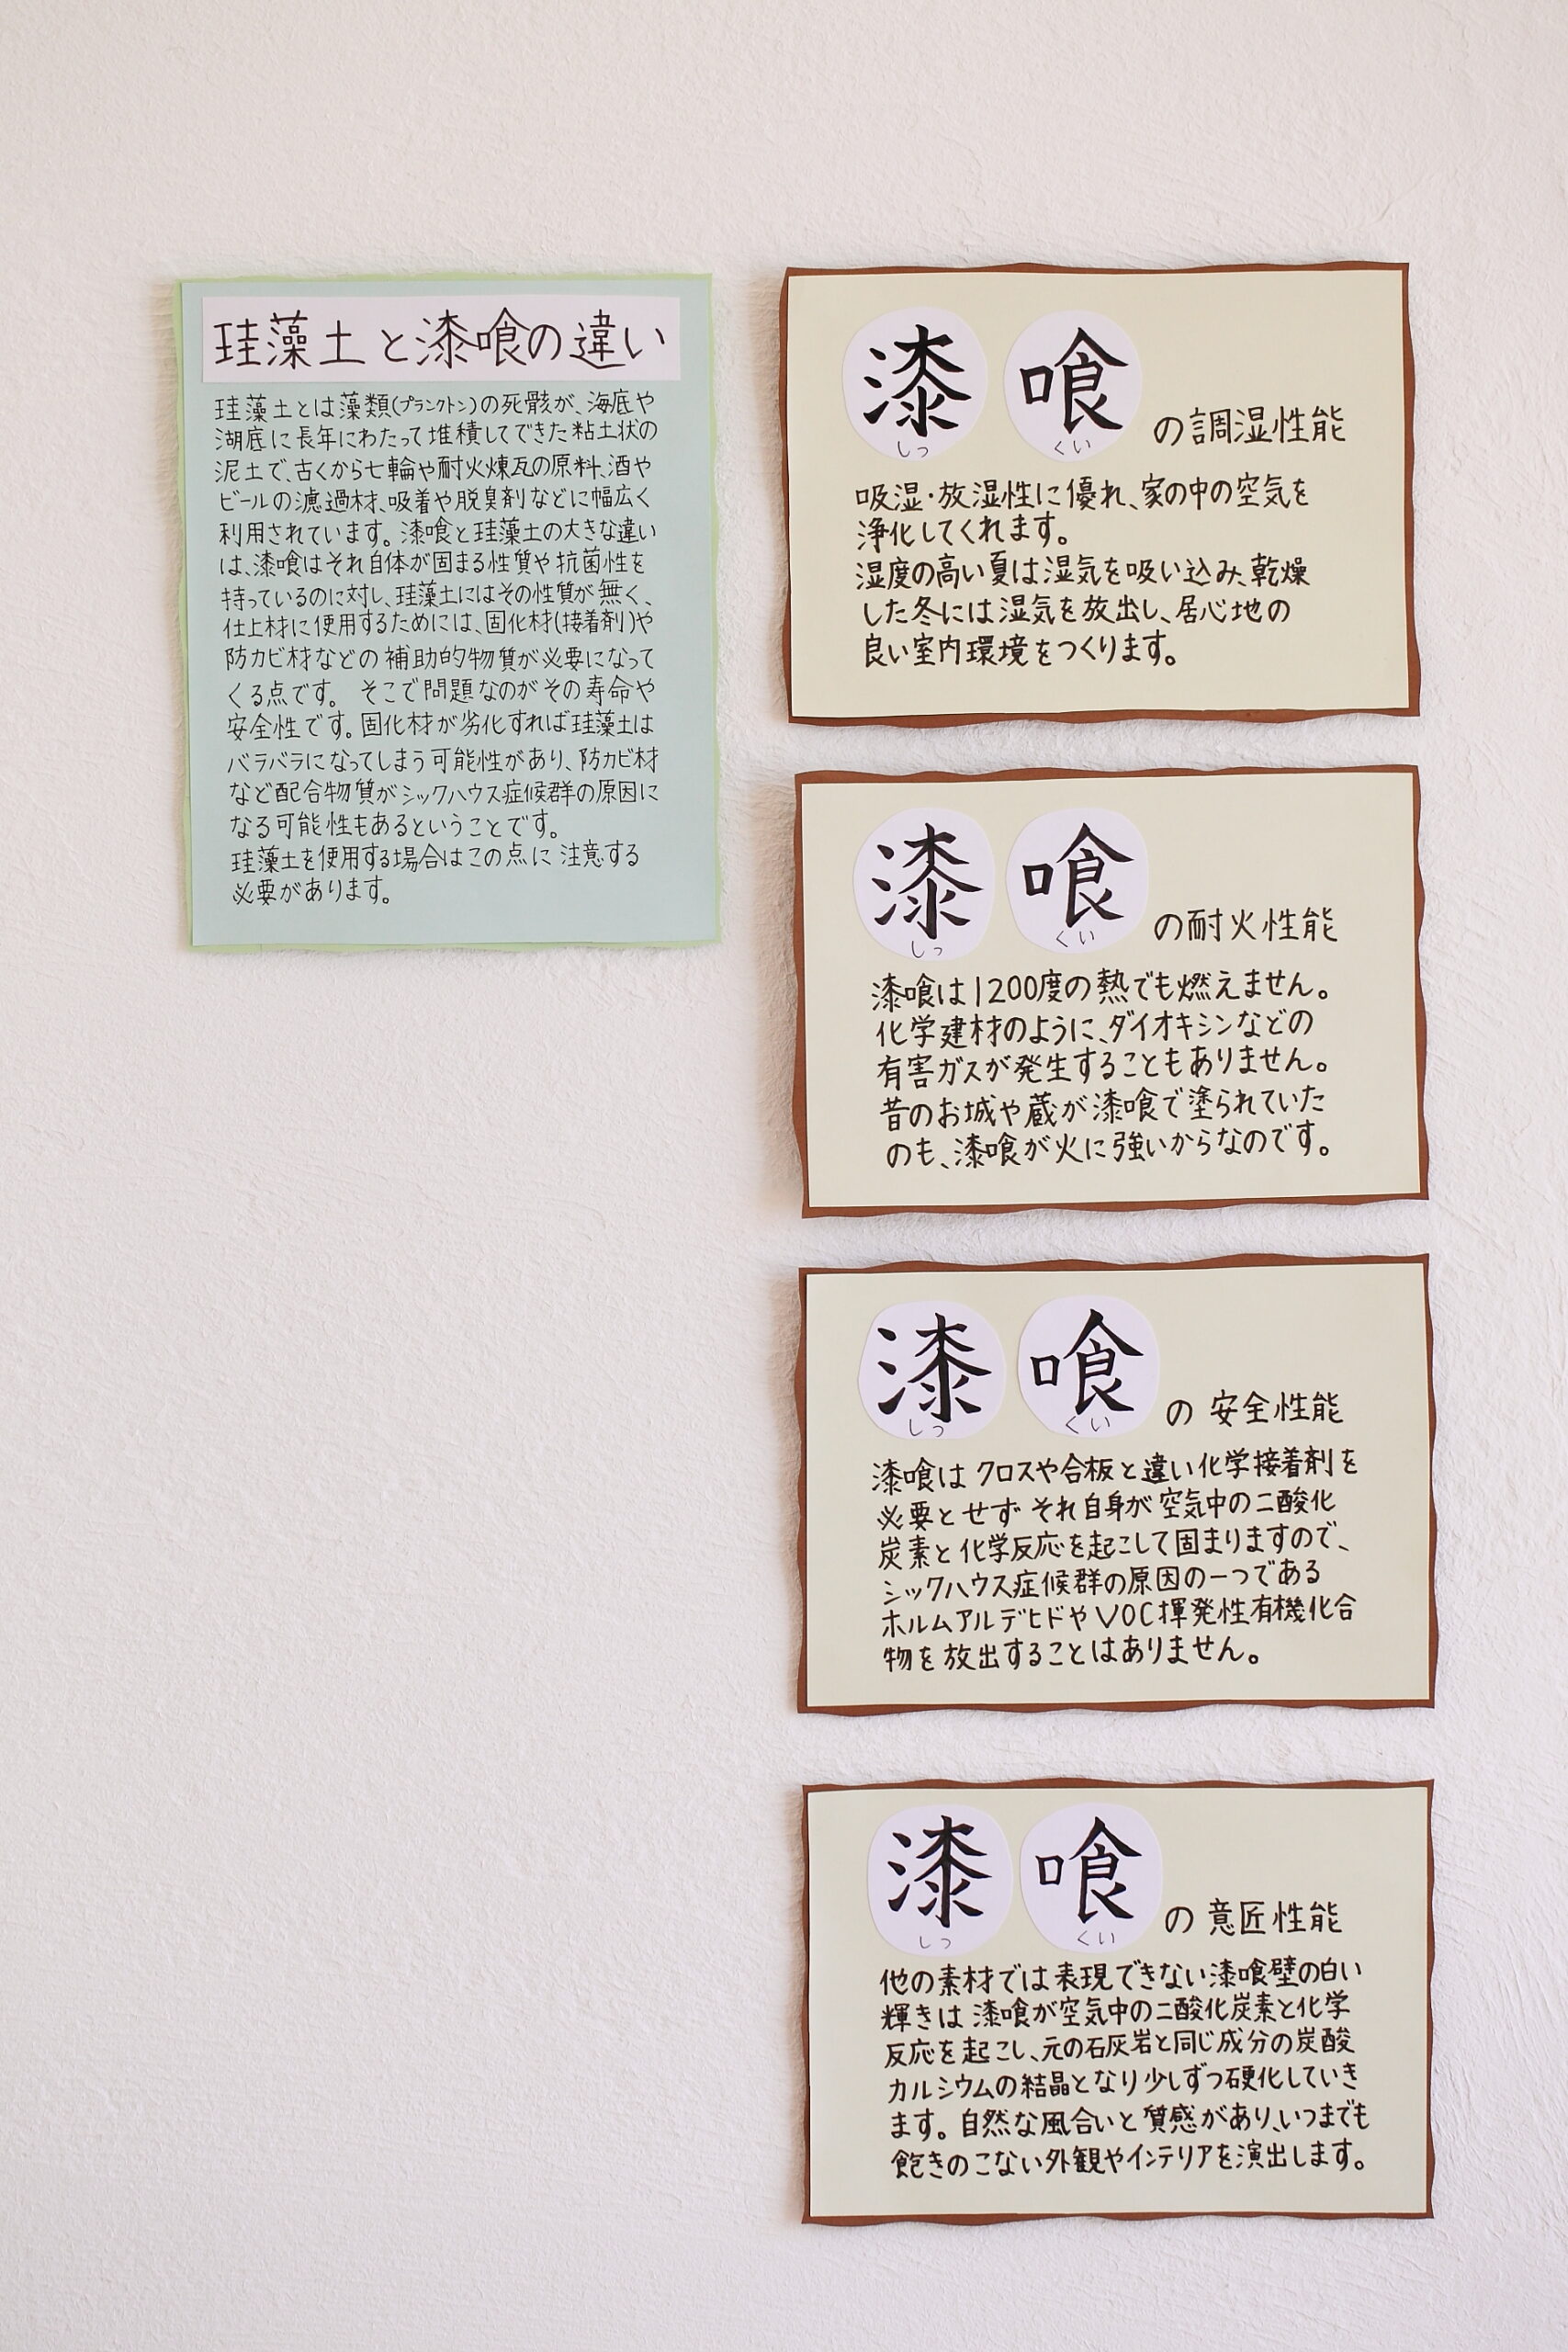 珪藻土と漆喰の違い
珪藻土とは藻類(プランクトン)の死骸が、海底や
湖底に長年にわたって堆積してできた粘土状の
泥土で、古くから七輪や耐火煉瓦の原料、酒や
ビールの濾過材、吸着や脱臭剤などに幅広く
利用されています。漆喰と珪藻土の大きな違い
は、漆喰はそれ自体が固まる性質や抗菌性を
持っているのに対し、珪藻土にはその性質が無く、
仕上材に使用するためには、固化材(接着剤)や
防カビ材などの補助的物質が必要になって
くる点です。 そこで問題なのがその寿命や
安全性です。固化材が劣化すれば珪藻土は
バラバラになってしまう可能性があり、防カビ材
など配合物質がシックハウス症候群の原因に
なる可能性もあるということです。
珪藻土を使用する場合はこの点に注意する
必要があります。
漆喰の調湿性能
しっくい
吸湿・放湿性に優れ、家の中の空気を
浄化してくれます。
湿度の高い夏は湿気を吸い込み、乾燥
した冬には湿気を放出し、居心地の
良い室内環境をつくります。
漆喰の耐火性能
しっくい
漆喰は1200度の熱でも燃えません。
化学建材のように、ダイオキシンなどの
有害ガスが発生することもありません。
昔のお城や蔵が漆喰で塗られていた
のも、漆喰が火に強いからなのです。
漆喰の安全性能
しっくい
漆喰はクロスや合板と違い化学接着剤を
必要とせずそれ自身が空気中の二酸化
炭素と化学反応を起こして固まりますので、
シックハウス症候群の原因の一つである
ホルムアルデヒドやVOC揮発性有機化合
物を放出することはありません。
漆喰の意匠性能
しっくい
他の素材では表現できない漆喰壁の白い
輝きは漆喰が空気中の二酸化炭素と化学
反応を起こし、元の石灰岩と同じ成分の炭酸
カルシウムの結晶となり少しずつ硬化していき
ます。自然な風合いと質感があり、いつまでも
飽きのこない外観やインテリアを演出します。